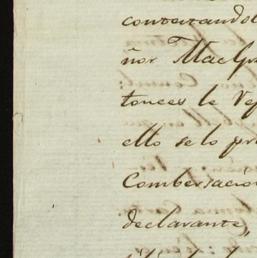 contestandole
ñor MacGr
tonces le Vep
ello se lo pr
Combersacion
declarante,